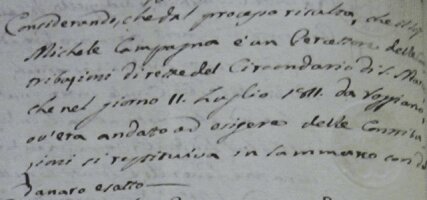 Considerando, che dal processo risulta, che il Sig.
Michele Campagna è un Percettore delle Con
tribuzioni dirette del Circondario di S. Mar
che nel giorno 11. Luglio 1811. da Poggiano,
ov'era andato ad esigere delle Contribu
zioni si restituiva in Sammarco con del
danaro esatto